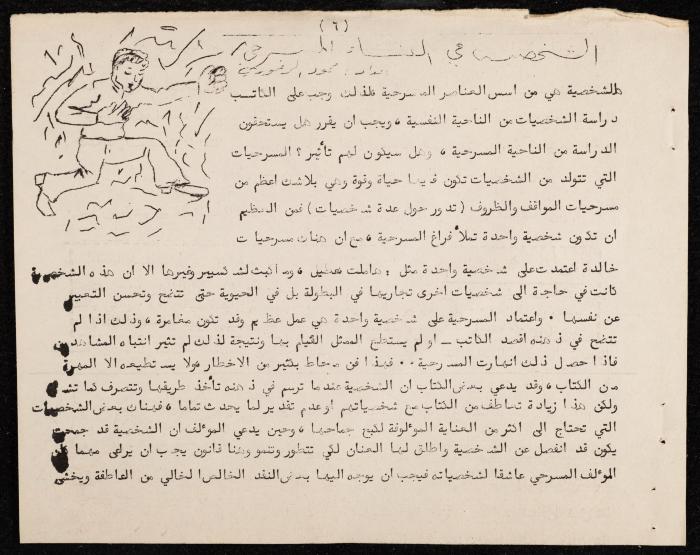 (٦)
الشخصية في البناء المسرحي
اعداد: محمود الزغوري
الشخصية هي من اسس العناصر المسرحية فلذلك وجب على الكاتب
دراسة الشخصيات من الناحية النفسية ، ويجب ان يقرر هل يستحقون
الدراسة من الناحية المسرحية ، وهل سيكون لهم تأثير ؟ المسرحيات
التي تتولد من الشخصيات تكون فيها حياة وقوة وهي بلاشك اعظم من
مسرحيات المواقف والظروف ( تدور حول عدة شخصيات ) فمن العظيم
ان تكون شخصية واحدة تملأ فراغ المسرحية ، مع ان هناك مسرحيات
خالدة اعتمدت على شخصية واحدة مثل : هاملت وماكبث لشكسبير وغيرها الا ان هذه الشخصية
كانت في حاجة الى شخصيات اخرى تجاريها في البطولة بل في الحيوية حتى تتضح وتحسن التعبير
عن نفسها ٠ واعتماد المسرحية على شخصية واحدة هي عمل عظيم وقد تكون مغامرة ، وذلك اذا لم
تتضح في ذهنه اقصد الكاتب ــ او لم يستطع الممثل القيام بها ونتيجة لذلك لم تثير انتباه المشاهدين
فاذا حصل ذلك انهارت المسرحية ٠٠ فهذا فن محاط بكثير من الاخطار ولا يستطيعه الا المهرة
من الكتاب ، وقد يدعي بعض الكتاب ان الشخصية عندما ترسم في ذهنه تأخذ طريقها وتتصرف كما تشاء
ولكن هذا زيادة تعاطف من الكتاب مع شخصياتهم او عدم تقدير لما يحدث تماما ، فهناك بعض الشخصيات
التي تحتاج الى اكثر من العناية المؤلوفة لكبح جماحها ، وحين يدعي المؤلف ان الشخصية قد جمحت
يكون قد انفصل عن الشخصية واطلق لها العنان لكي تتطور وتنمو وهنا قانون يجب ان يراعى مهما كان
المؤلف المسرحي عاشقا لشخصياته فيجب ان يوجه اليها بعض النقد الخالص الخالي من العاطفة ويخشى